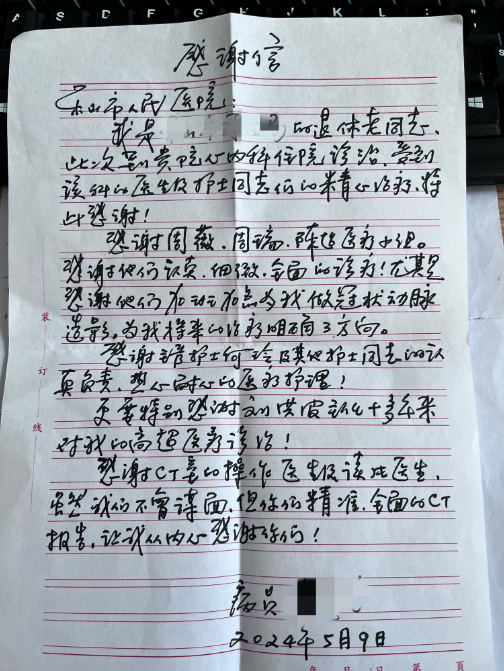 A S D F G H J K L
感谢信
市人民医院:
我是 的退休老同志,
此次到贵院心内科住院诊治,受到
该科的医生及护士同志们的精心治疗,特
此感谢!
感谢周薇、周瑞、陈超医疗小组。
感谢他们认真、细微、全面的诊疗!尤其是
感谢他们 为我做冠状动脉
造影,为我将来的治疗明确了方向。
感谢 护士何玲及其他护士同志的认
真负责、热心耐心的医疗护理!
更要特别感谢刘 十多年来
对我的高超医疗诊治!
感谢CT室的操作医生及读片医生,
虽然我们不曾谋面,但你们精准、全面的CT
报告,让我从内心感谢你们!
病员
2024年5月9日
装
订
线
年 月 日 第 页